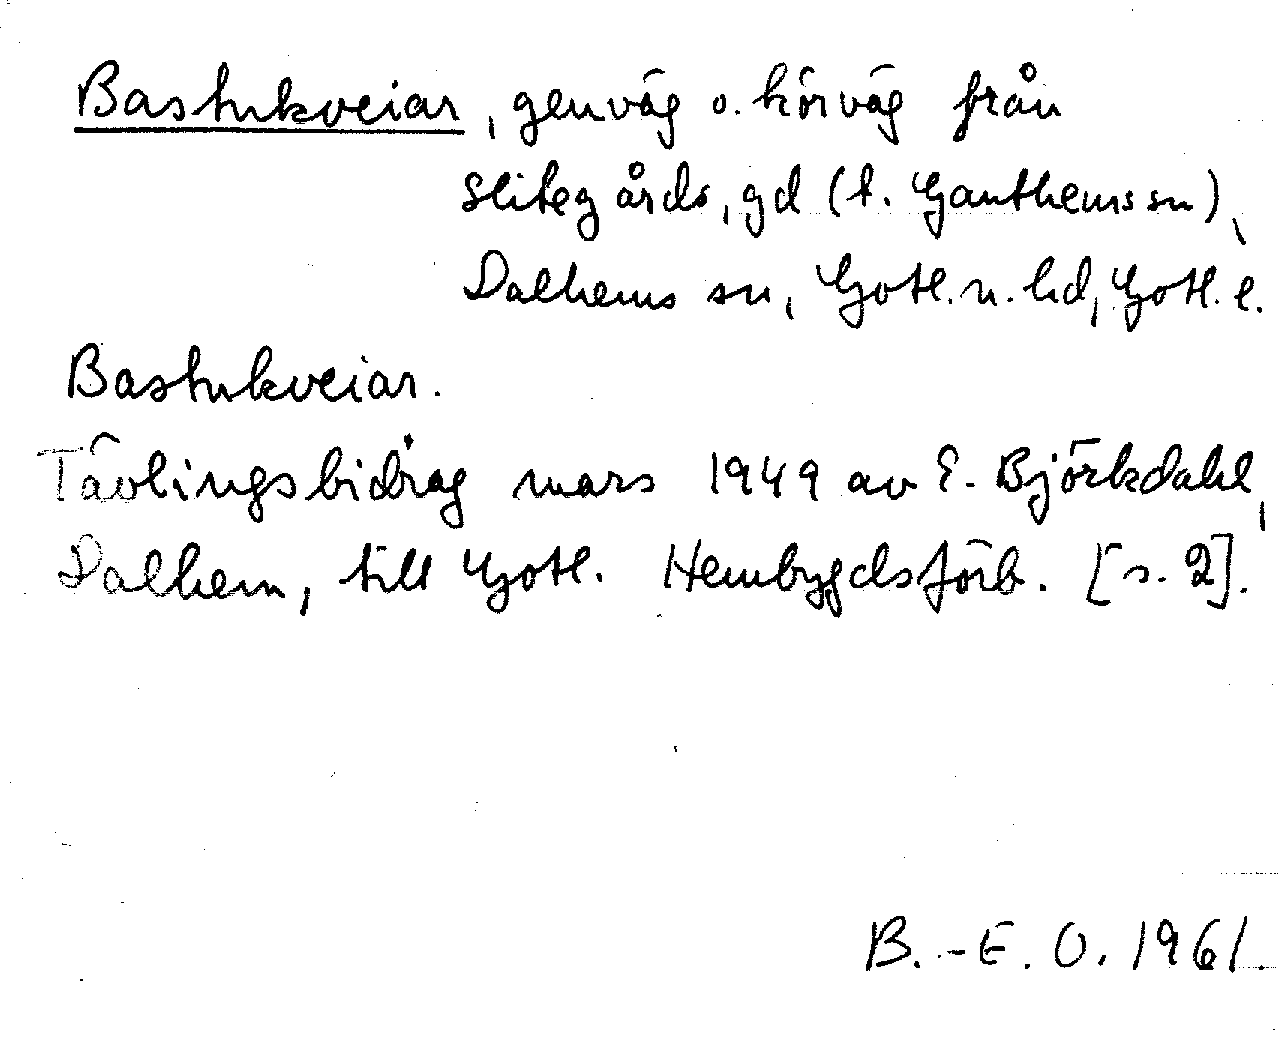 Bastukveiar, genväg o. körväg från
Slitegårds, gd (t. Ganthems sn),
Dalhems sn, Gotl. n. hd, Gotl. l.
Bastukveiar.
Tävlingsbidrag mars 1949 av E. Björkdahl,
Dalhem, till Gotl. Hembygdsförb. [s. 2].
B.-E. O. 1961.